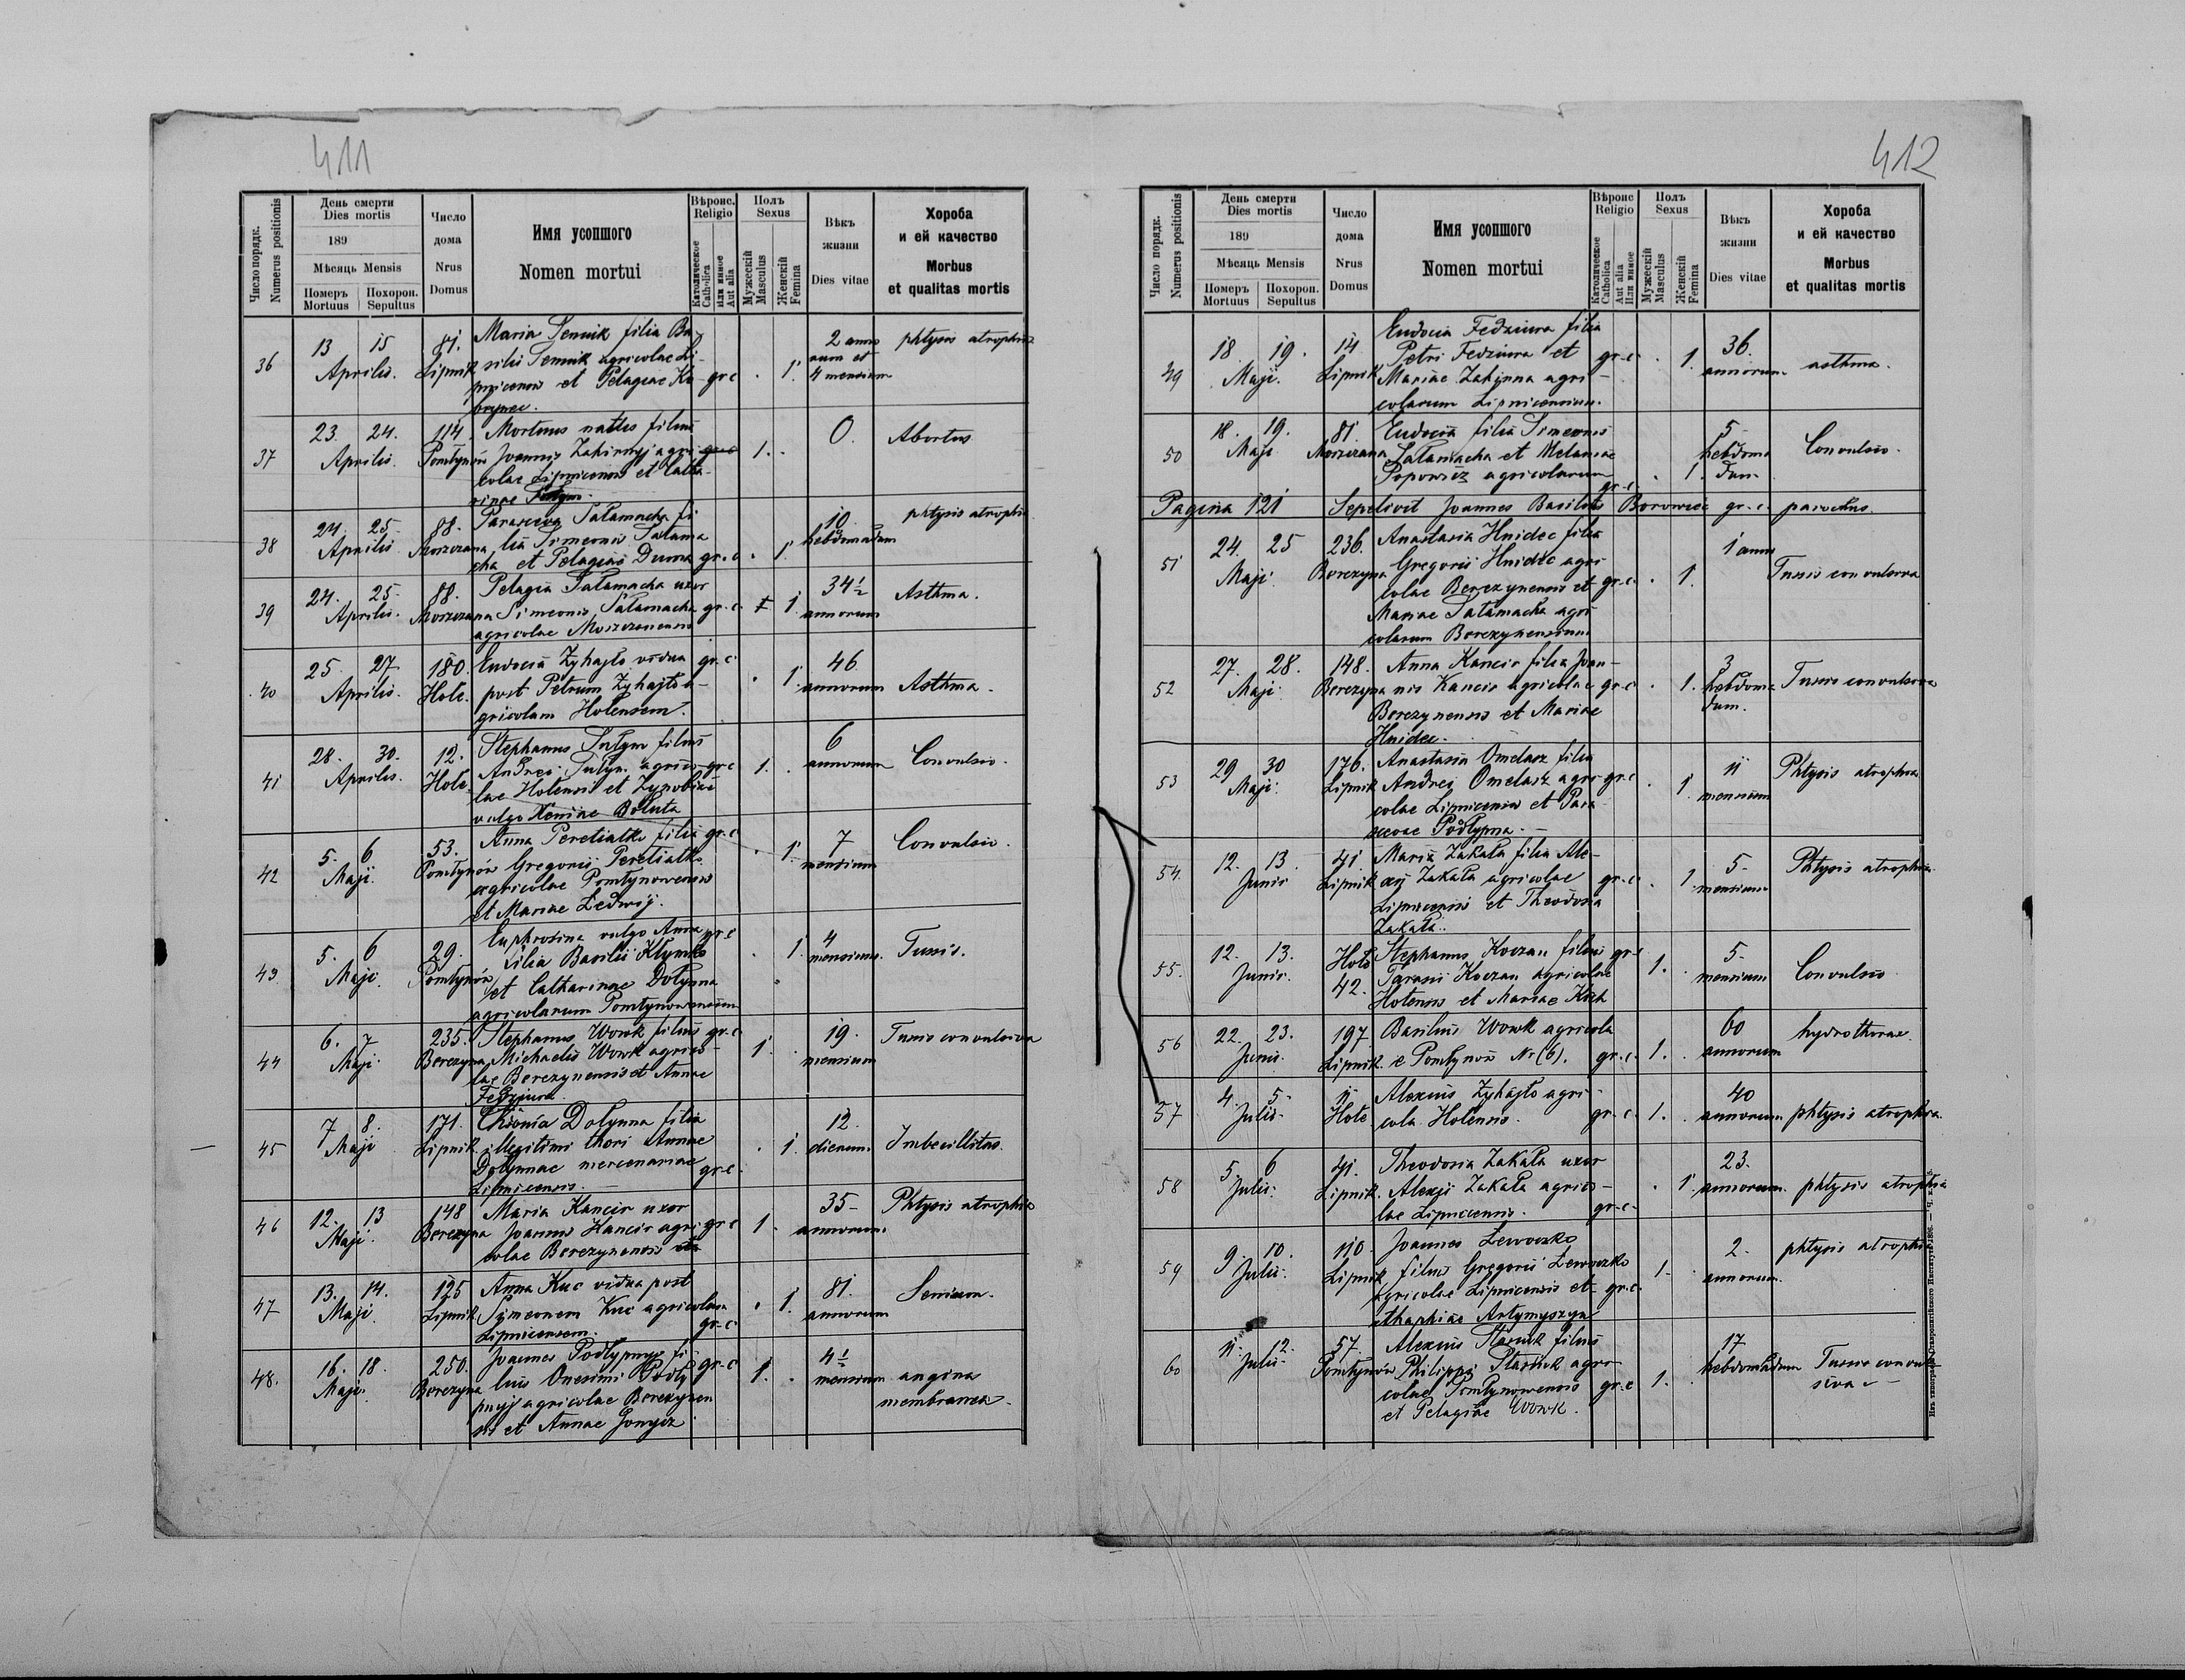 411
Число порядк.
Numerus positionis
День смерти
Dies mortis
189
Мѣсяць Mensis
Померъ Похорон.
Mortuus Sepultus
Число
дома
Nrus
Domus
Имя усопшого
Nomen mortui
Вѣроис.
Religio
Католическое
Catholica
Или иниое
Aut alia
Полъ
Sexus
Мужескій
Masculus
Женскій
Femina
Вѣкъ
жизни
Dies vitae
Хороба
и ей качество
Morbus
et qualitas mortis
36 13 15 Aprilis. 81. Lipnik
Maria Sennik filia Ba
silii Sennik agricolae Li-
pnicensis et Pelagiae
gr c . 1. 2 4 mensium phtysis atrophia
37 23. 24. Aprilis. 114. Pomłynów
Mortuus natus filius
Joannis Zahirnyj agri
colae Lipnicensis et Catha-
rinae
1. . 0. Abortus
38 24. 25. Aprilis 88. Moszczana
Parasceva Sałamacha fi
lia Simeonis Sałama
cha et Pelagiae Duma
gr. c . 1. 10 hebdomadum phtysis atrophi
39 24. 25. Aprilis. 88. Moszczana
Pelagia Sałamacha uxor
Simeonis Sałamacha
agricolae Moszczanensis
gr. c. 1. 34½ annorum Asthma.
40 25. 27. Aprilis. 180. Hole.
Eudocia Zyhajło vidua
post Petrum Zyhajło a-
gricolam Holensem.
gr. c . 1. 46 annorum Asthma.
41 28. 30. Aprilis. 12. Hole
Stephanus Sułym filius
Andrei Sułym agrico-
lae Holensis et Zynobiae
vulgo Xeniae Boluta
gr c 1. . 6 annorum Convulsio.
42 5. 6 Maji. 53. Pomłynów
Anna Peretiatko filia
Gregorii Peretiatko
agricolae Pomłynowensis
et Mariae Ledwij.
gr. c . 1. 7 mensium Convulsio.
43 5. 6 Maji. 29. Pomłynów
Euphrosina vulgo Anna
filia Basilii Klymko
et Catharinae Dołynna
agricolarum Pomłynowensium
gr. c . 1. 4 mensium. Tussis.
44 6. 7 Maji. 235. Berezyna
Stephanus Wowk filius
Michaelis Wowk agrico-
lae Berezynensis et Annae
Fedziura
gr. c 1. . 19. mensium Tussis convulsiva
45 7 8. Maji 171. Lipnik
Chionia Dołynna filia
illegitimi thori Annae
Dołynnae mercenariae
Lipnicensis.
gr. c. . 1. 12. dierum. Imbecillitas.
46 12. 13 Maji. 148 Berezyna
Maria Kancir uxor
Joannis Kancir agri
colae Berezynensis
gr c 1. 35 annorum. Phtysis atrophia
47 13. 14. Maji. 125 Lipnik
Anna Kuc vidua post
Symeonem Kuc agricolam
Lipnicensem.
gr. c. . 1. 81. annorum Senium.
48. 16. 18. Maji. 250. Berezyna
Joannes Podłypnyj fi-
lius Onesimi Podły
pnyj agricolae Berezynen
sis et Annae Gonycz
gr. c 1. . 4½ mensium angina
membranea.
412
Число порядк.
Numerus positionis
День смерти
Dies mortis
189
Мѣсяць Mensis
Померъ Похорон.
Mortuus Sepultus
Число
дома
Nrus
Domus
Имя усопшого
Nomen mortui
Вѣроис
Religio
Католическое
Catholica
Aut alia
Или иниое
Полъ
Sexus
Мужескій
Masculus
Женскій
Femina
Вѣкъ
жизни
Dies vitae
Хороба
и ей качество
Morbus
et qualitas mortis
49 18. 19. Maji. 14 Lipnik
Eudocia Fedziura filia
Petri Fedziura et
Mariae Zahirna agri-
colarum Lipnicensium.
gr. c . 1. 36. annorum. asthma.
50 18. 19. Maji 81. Moszczana
Eudocia filia Simeonis
Sałamacha et Melaniae
Popowicz agricolarum
gr. c. . 1. 5 hebdoma
dum Convulsio.
Pagina 121 Sepelivit Joannes Basilius Borowiec gr. c. parochus.
51 24. 25 Maji 236. Berezyna
Anastasia Hnidec filia
Gregorii Hnidec agri
colae Berezynensis et
Mariae Sałamacha agri
colarum Berezynensium
gr. c. . 1. 1 anni Tussis convulsiva
52 27. 28. Maji 148. Berezyna
Anna Kancir filia Joan-
nis Kancir agricolae
Berezynensis et Mariae
Hnidec.
gr. c . 1. 3 hebdoma
dum. Tussis convulsiva
53 29 30 Maji 176. Lipnik
Anastasia Omelasz filia
Andrei Omelasz agri
colae Lipnicensis et Para
scevae Podłypna.
gr. c . 1 11 mensium Phtysis atrophia
54 12. 13 Junii 41 Lipnik
Maria Zakała filia Ale-
xij Zakała agricolae
Lipnicensis et Theodosia
Zakała.
gr. c. . 1 5 mensium Phtysis atrophia
55. 12. 13. Junii. Hole 42.
Stephanus Koczan filius
Tarasii Koczan agricolae
Holensis et Mariae
gr. c 1. . 5 mensium Convulsio
56 22. 23. Junii. 197. Lipnik.
Basilius Wowk agricola
e Pomłynów Nr (6).
gr. c. 1. . 60 annorum hydrothorax.
57 4. 5. Julii. 11 Hole
Alexius Zyhajło agri-
cola Holensis.
gr. c. 1. . 40 annorum phtysis atrophia.
58 5. 6 Julii. 41. Lipnik.
Theodosia Zakała uxor
Alexji Zakała agrico-
lae Lipnicensis.
gr. c. . 1. 23. annorum. phtysis atrophia
59 9. 10. Julii. 110. Lipnik
Joannes Lewoczko
filius Gregorii Lewoczko
agricolae Lipnicensis et
Artymyszyn
gr. c. 1. . 2. annorum. phtysis atrophi
60 11. 12. Julii. 57. Pomłynów
Alexius Stasiuk filius
Philippi Stasiuk agri-
colae Pomłynowensis
et Pelagiae Wowk.
gr. c 1. . 17 hebdomadum Tussis convul
siva
Изъ типографіи Ставропигійского Института 1896.